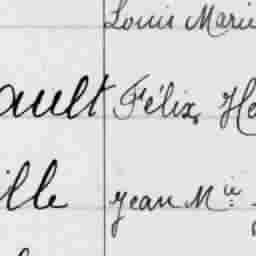 Louis Marie
ault Félix, He
ille Jean M.ie